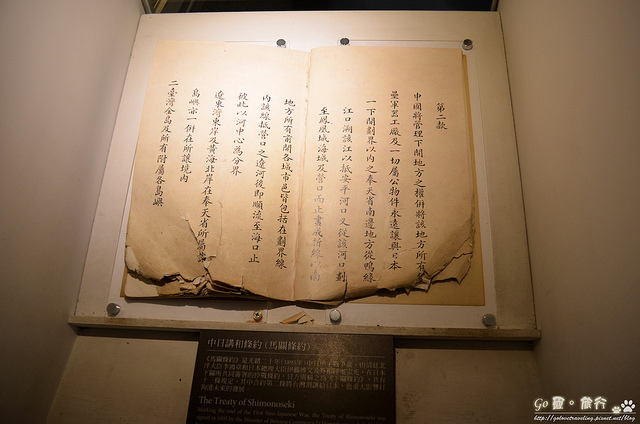 第二款
中國將管理下開地方之權併將該地方所有
壘軍器工廠及一切屬公物件永遠讓與日本
一下開劃界以內之奉天省南邊地方從鴨綠
江口溯該江以抵安平河口又從該河口劃
至鳳凰城海城及營口而止畫成折線以南
地方所有前開各城市邑皆包括在劃界線
內該線抵營口之遼河後即順流至海口止
彼此以河中心為分界
遼東灣東岸及黃海北岸在奉天省所屬諸
島嶼亦一併在所讓境內
二臺灣全島及所有附屬各島嶼
中日講和條約(馬關條約)
The Treaty of Shimonoseki
Marking the end of the First Sino-Japanese War, the Treaty of Shimonoseki was
Go 靈。旅行
http://golovetraveling.pixnet.net/blog